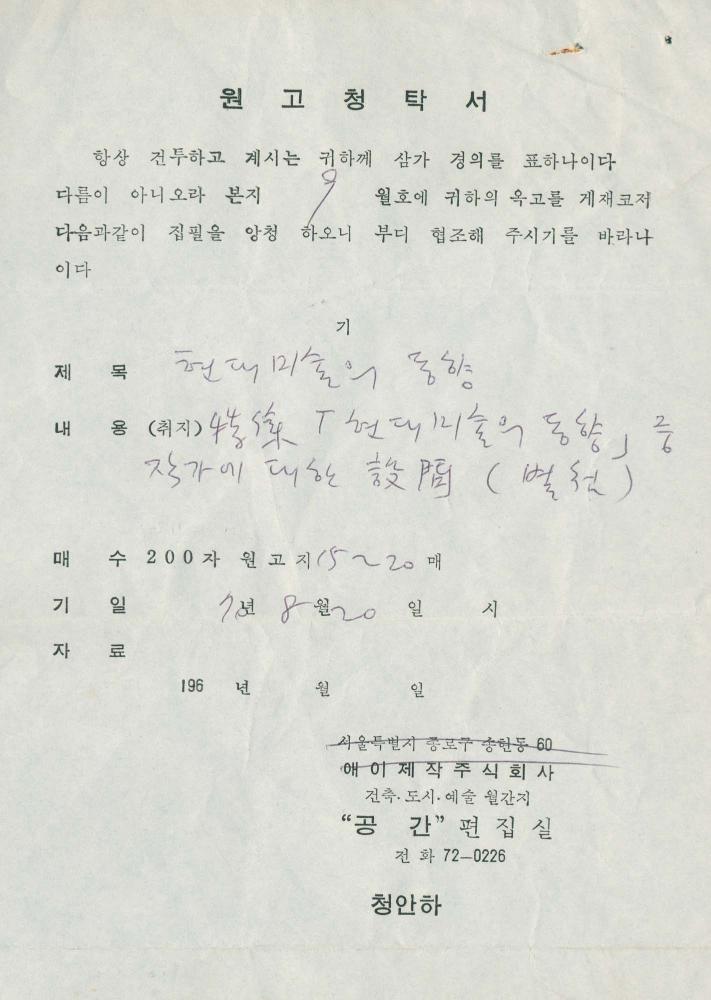 원고청탁서
항상 건투하고 계시는 귀하께 삼가 경의를 표하나이다
다름이 아니오라 본지 9 월호에 귀하의 옥고를 게재코저
다음과같이 집필을 앙청 하오니 부디 협조해 주시기를 바라나
이다
기
제 목 현대미술의 동향
내 용 (취지) 特集「현대미술의 동향」중
작가에 대한 設問 (별첨)
매 수 200자 원고지 15~20 매
기 일 년 8월 20 일 시
자 료
196 년 월 일
서울특별시 종로구 송현동 60
애이제작주식회사
건축·도시·예술 월간지
“공 간” 편집실
전화 72-0226
청안하